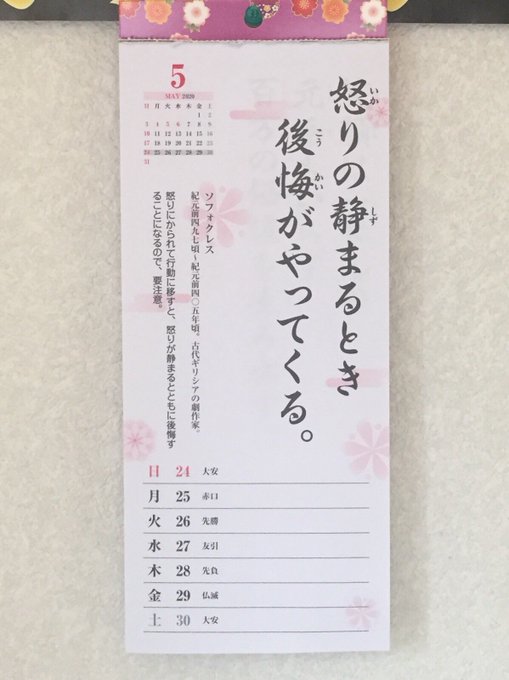 怒りの静まるとき
いか
しず
後悔がやってくる。
こう
かい
5
MAY 2020
日 月 火 水 木 金 土
1 2
3 4 5 6 7 8 9
10 11 12 13 14 15 16
17 18 19 20 21 22 23
24 25 26 27 28 29 30
31
ソフォクレス
紀元前四九七頃〜紀元前四〇五年頃。古代ギリシアの劇作家。
怒りにかられて行動に移すと、怒りが静まるとともに後悔す
ることになるので、要注意。
日 24 大安
月 25 赤口
火 26 先勝
水 27 友引
木 28 先負
金 29 仏滅
土 30 大安